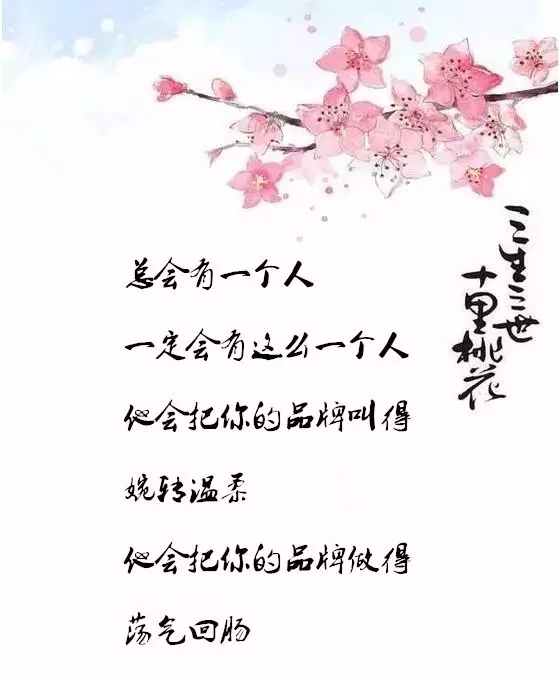 三生三世
十里桃花
总会有一个人
一定会有这么一个人
他会把你的品牌叫得
婉转温柔
他会把你的品牌做得
荡气回肠